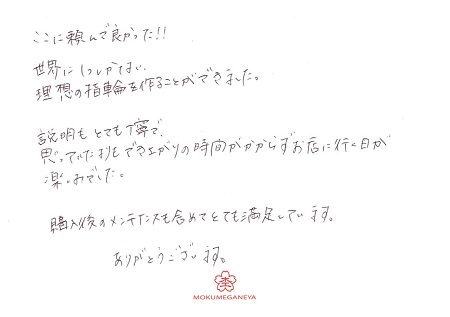 ここに頼んで良かった!!
世界に1つしかない、
理想の指輪を作ることができました。
説明もとても丁寧で、
思っていたよりもでき上がりの時間がかからずお店に行く日が
楽しみでした。
購入後のメンテナンスも含めてとても満足しています。
ありがとうございます。
MOKUMEGANEYA